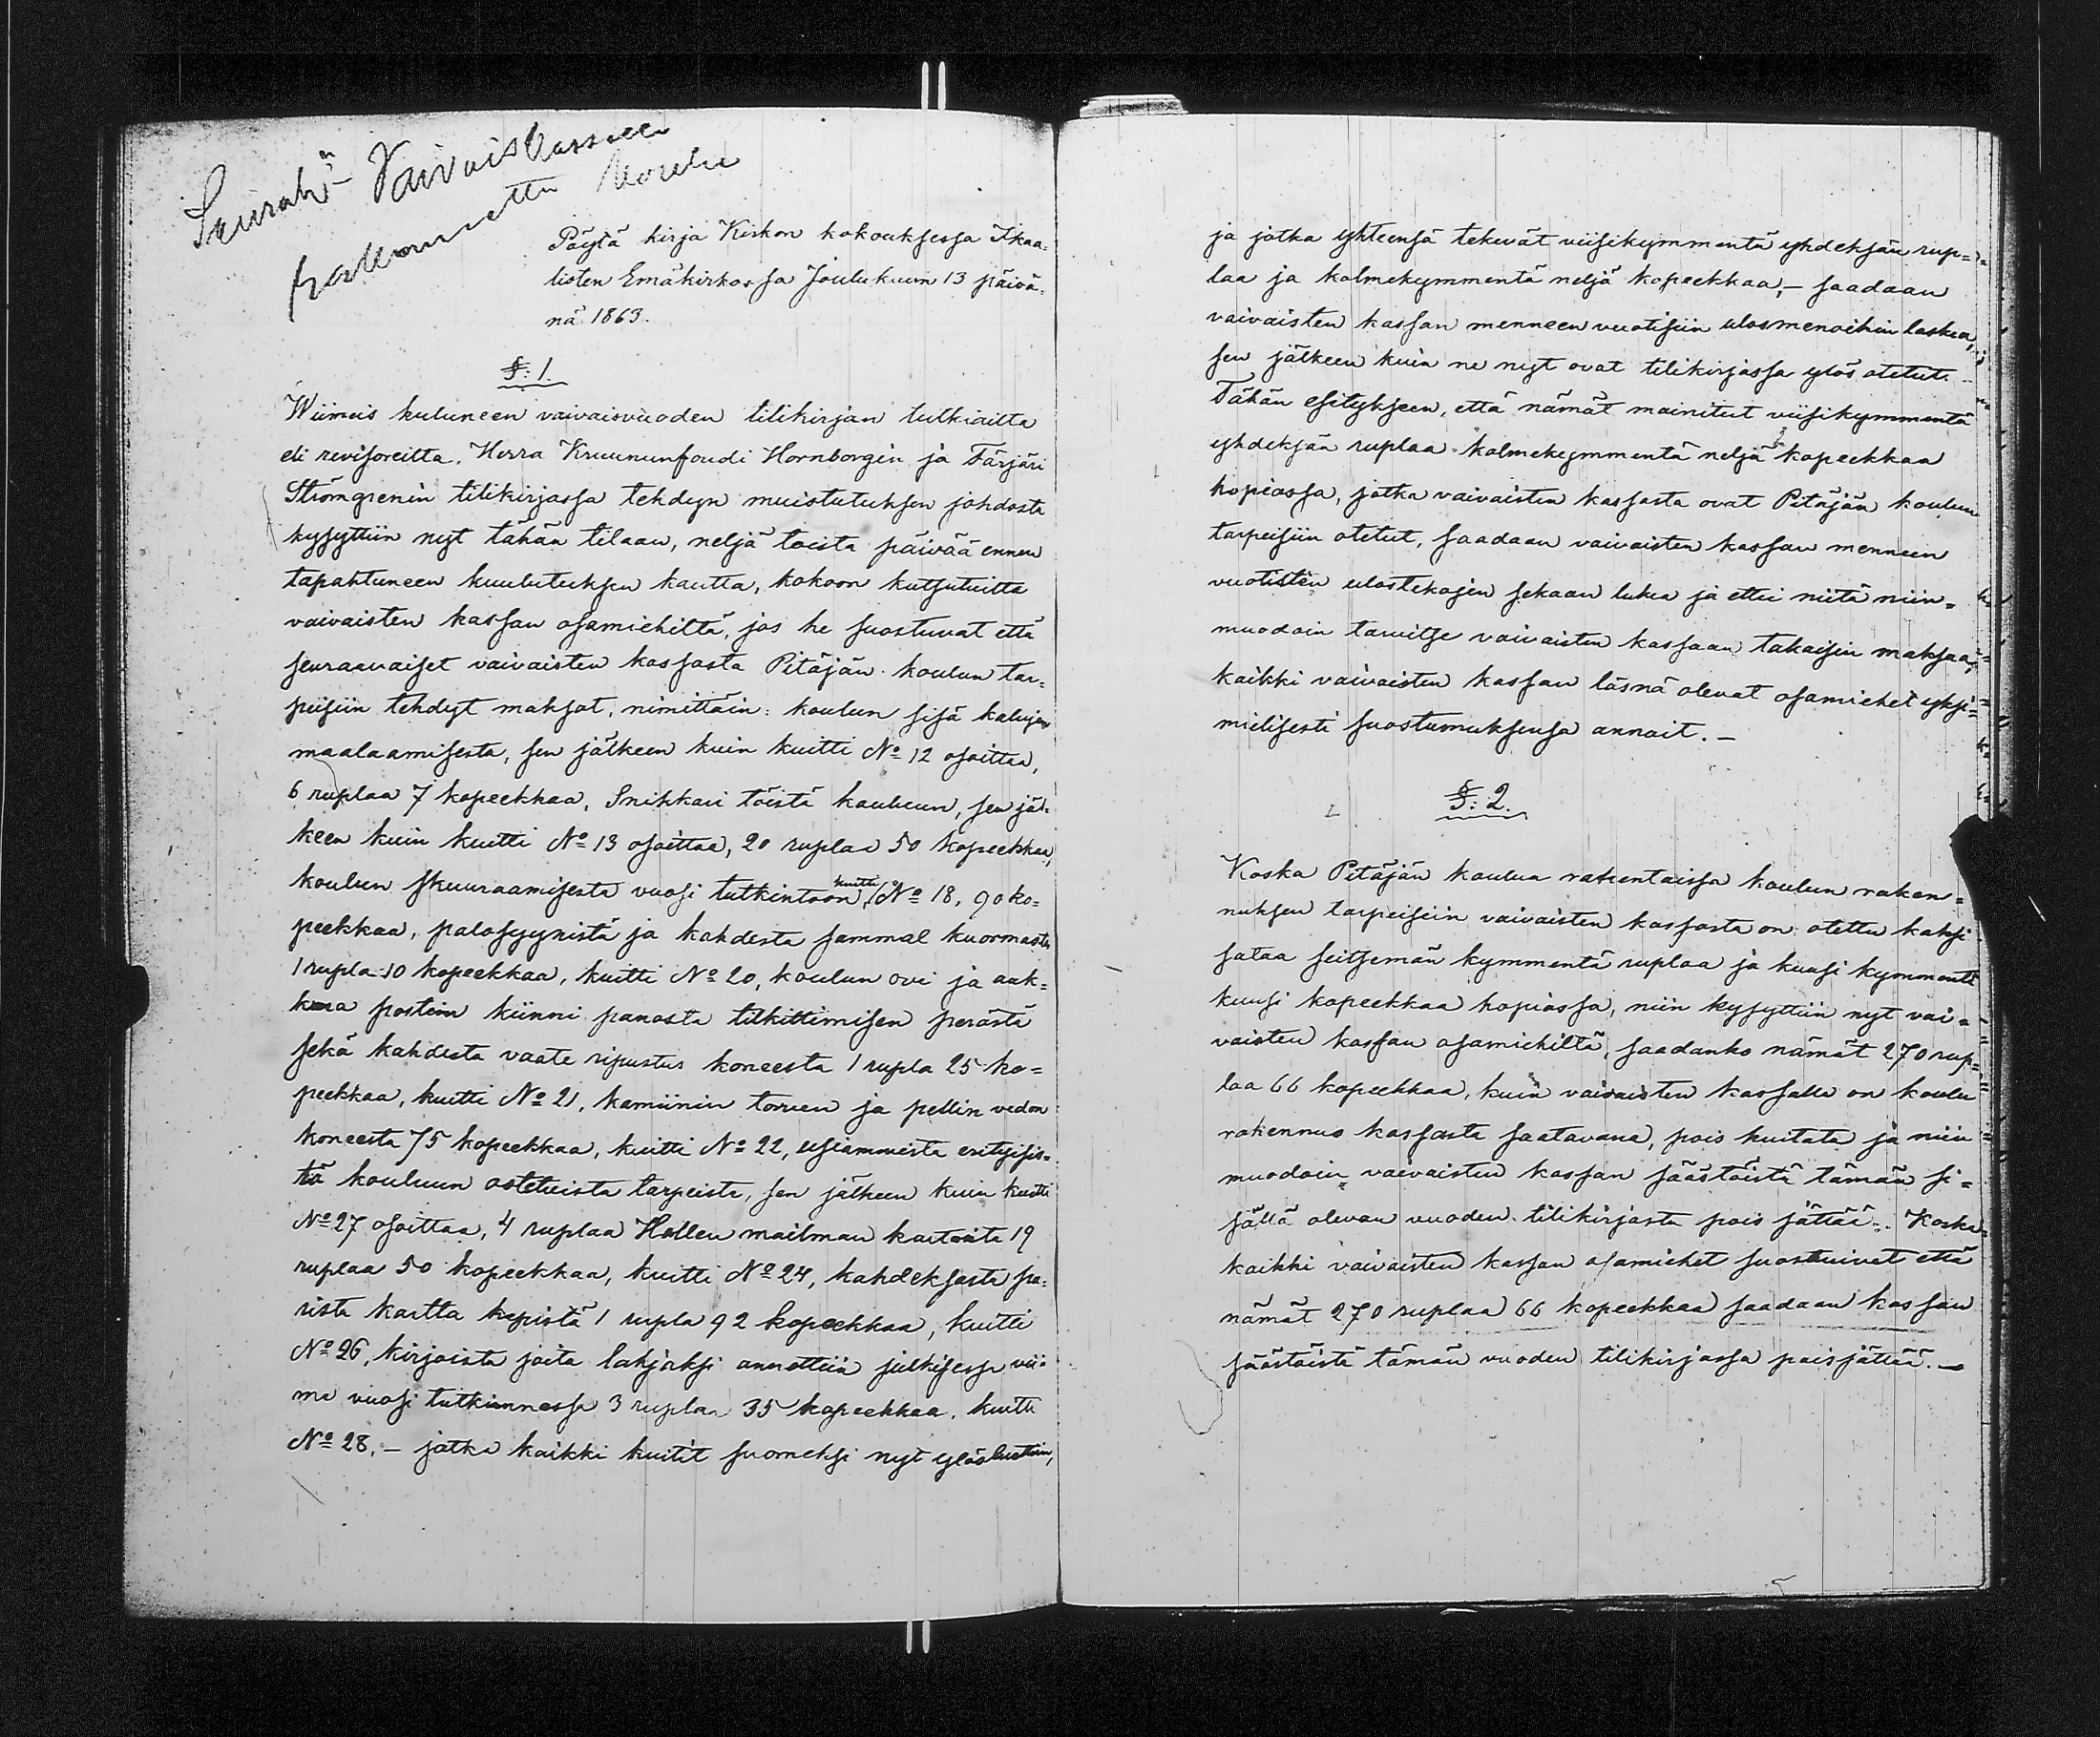 Seurak:n Vaivaiskassan
Pöytä kirja Kirkon kokouksessa Ikaa=
listen Emäkirkossa Joulukuun 13 päivä=
nä 1863.
§: 1.
Wiimeis kuluneen vaivaisvuoden tilikirjan tutkiailta
eli revisoreilta, Herra Kruununfoudi Hornborgin ja Färjäri
Strömgrenin tilikirjassa tehdyn muistutuksen johdosta
kysyttiin nyt tähän tilaan, neljä toista päivää ennen
tapahtuneen kuulutuksen kautta, kokoon kutsutuilta
vaivaisten kassan osamiehiltä, jos he suostuvat että
seuraavaiset vaivaisten kassasta Pitäjän koulun tar=
peisiin tehdyt maksot, nimittäin: koulun sisä kalujen
maalaamisesta, sen jälkeen kuin kuitti No 12 osoittaa,
6 ruplaa 7 kopeekkaa, Snikkari töistä kouluun, sen jäl=
keen kuin kuitti No 13 osoittaa, 20 ruplaa 50 kopeekkaa,
koulun skuuraamisesta vuosi tutkintoon, kuitti No 18, 90 ko=
peekkaa, palosyynistä ja kahdesta sammal kuormasta
1 rupla 10 kopeekkaa, kuitti No 20, koulun ovi ja ak=
kuna postein kiinni panosta tilkittimisen perästä
sekä kahdesta vaate ripustus koneesta 1 rupla 25 ko=
peekkaa, kuitti No 21, kamiinin torven ja pellin vedon
koneesta 75 kopeekkaa, kuitti No 22, usiammista erityisis=
tä kouluun ostetuista tarpeista, sen jälkeen kuin kuitti
No 27 osoittaa, 4 ruplaa Hallen mailman kartoista 19
ruplaa 50 kopeekkaa, kuitti No 24, kahdeksasta pa=
rista kartta kepistä 1 rupla 92 kopeekkaa, kuitti
No 26, kirjoista joita lahjaksi annettiin julkisessa vii=
me vuosi tutkinnossa 3 ruplaa 35 kopeekkaa, kuitti
No 28, – jotka kaikki kuitit suomeksi nyt ylösluettiin,
ja jotka yhteensä tekevät viisikymmentä yhdeksän rup=
laa ja kolmekymmentä neljä kopeekkaa, – saadaan
vaivaisten kassan menneen vuotisiin ulosmenoihin laskea,
sen jälkeen kuin ne nyt ovat tilikirjassa ylös otetut.
Tähän esitykseen, että nämät mainitut viisikymmentä
yhdeksän ruplaa kolmekymmentä neljä kopeekkaa
hopiassa, jotka vaivaisten kassasta ovat Pitäjän koulun
tarpeisiin otetut, saadaan vaivaisten kassan menneen
vuotisten ulostekojen sekaan lukea ja ettei niitä niin=
muodoin tarvitse vaivaisten kassaan takaisin maksaa,
kaikki vaivaisten kassan läsnä olevat osamiehet yksi=
mielisesti suostumuksensa annoit. –
§: 2.
Koska Pitäjän koulua rakentaissa koulun raken=
nuksen tarpeisiin vaivaisten kassasta on otettu kaksi
sataa seitsemän kymmentä ruplaa ja kuusi kymmentä
kuusi kopeekkaa hopiassa, niin kysyttiin nyt vai=
vaisten kassan osamiehiltä, saadanko nämät 270 rup=
laa 66 kopeekkaa, kuin vaivaisten kassalle on koulu
rakennus kassasta saatavana, pois kuitata ja niin
muodoin vaivaisten kassan säästöistä tämän si=
sällä olevan vuoden tilikirjasta pois jättää. Koska
kaikki vaivaisten kassan osamiehet suostuivat että
nämät 270 ruplaa 66 kopeekkaa saadaan kassan
säästöistä tämän vuoden tilikirjassa poisjättää. –